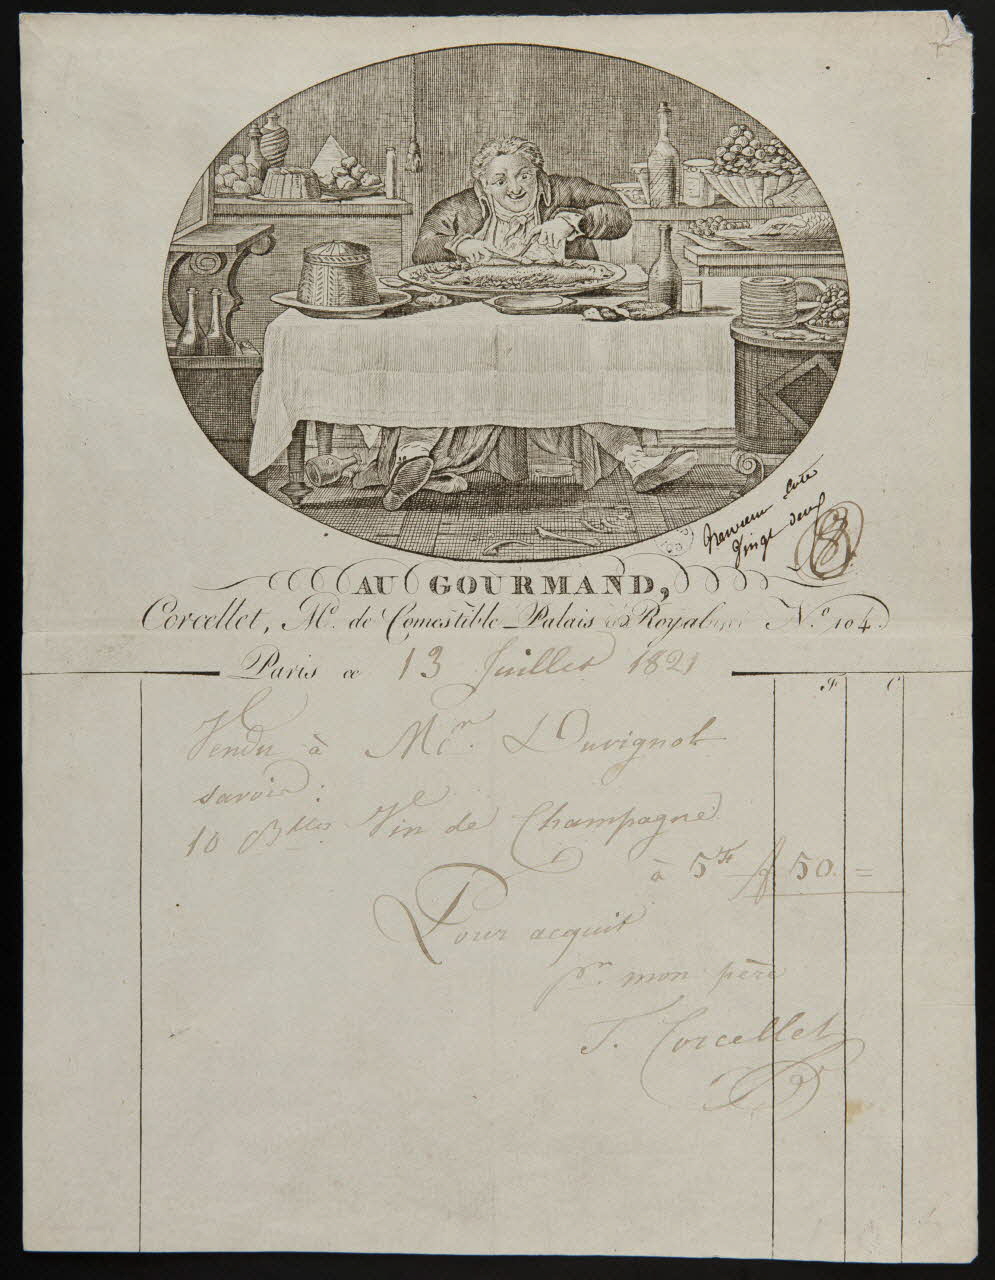 AU GOURMAND,
Corcellet, Md. de Comestible Palais Royal N.º 104.
Paris ce 13 Juillet 1821
F C
Vendu à Mr. Duvignot
savoir:
10 Blles Vin de Champagne
à 5F ff 50. =
Pour acquit
pr. mon père
T. Corcellet